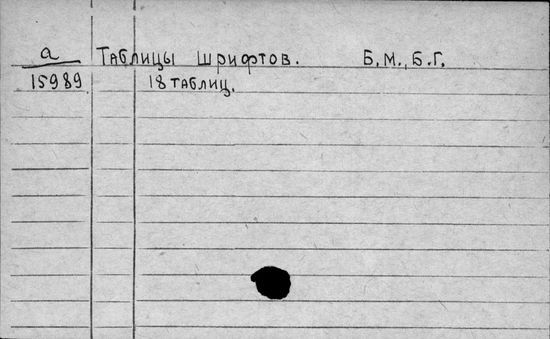 а Таблицы шрифтов. Б.М., Б.Г.
15989 18 таблиц.